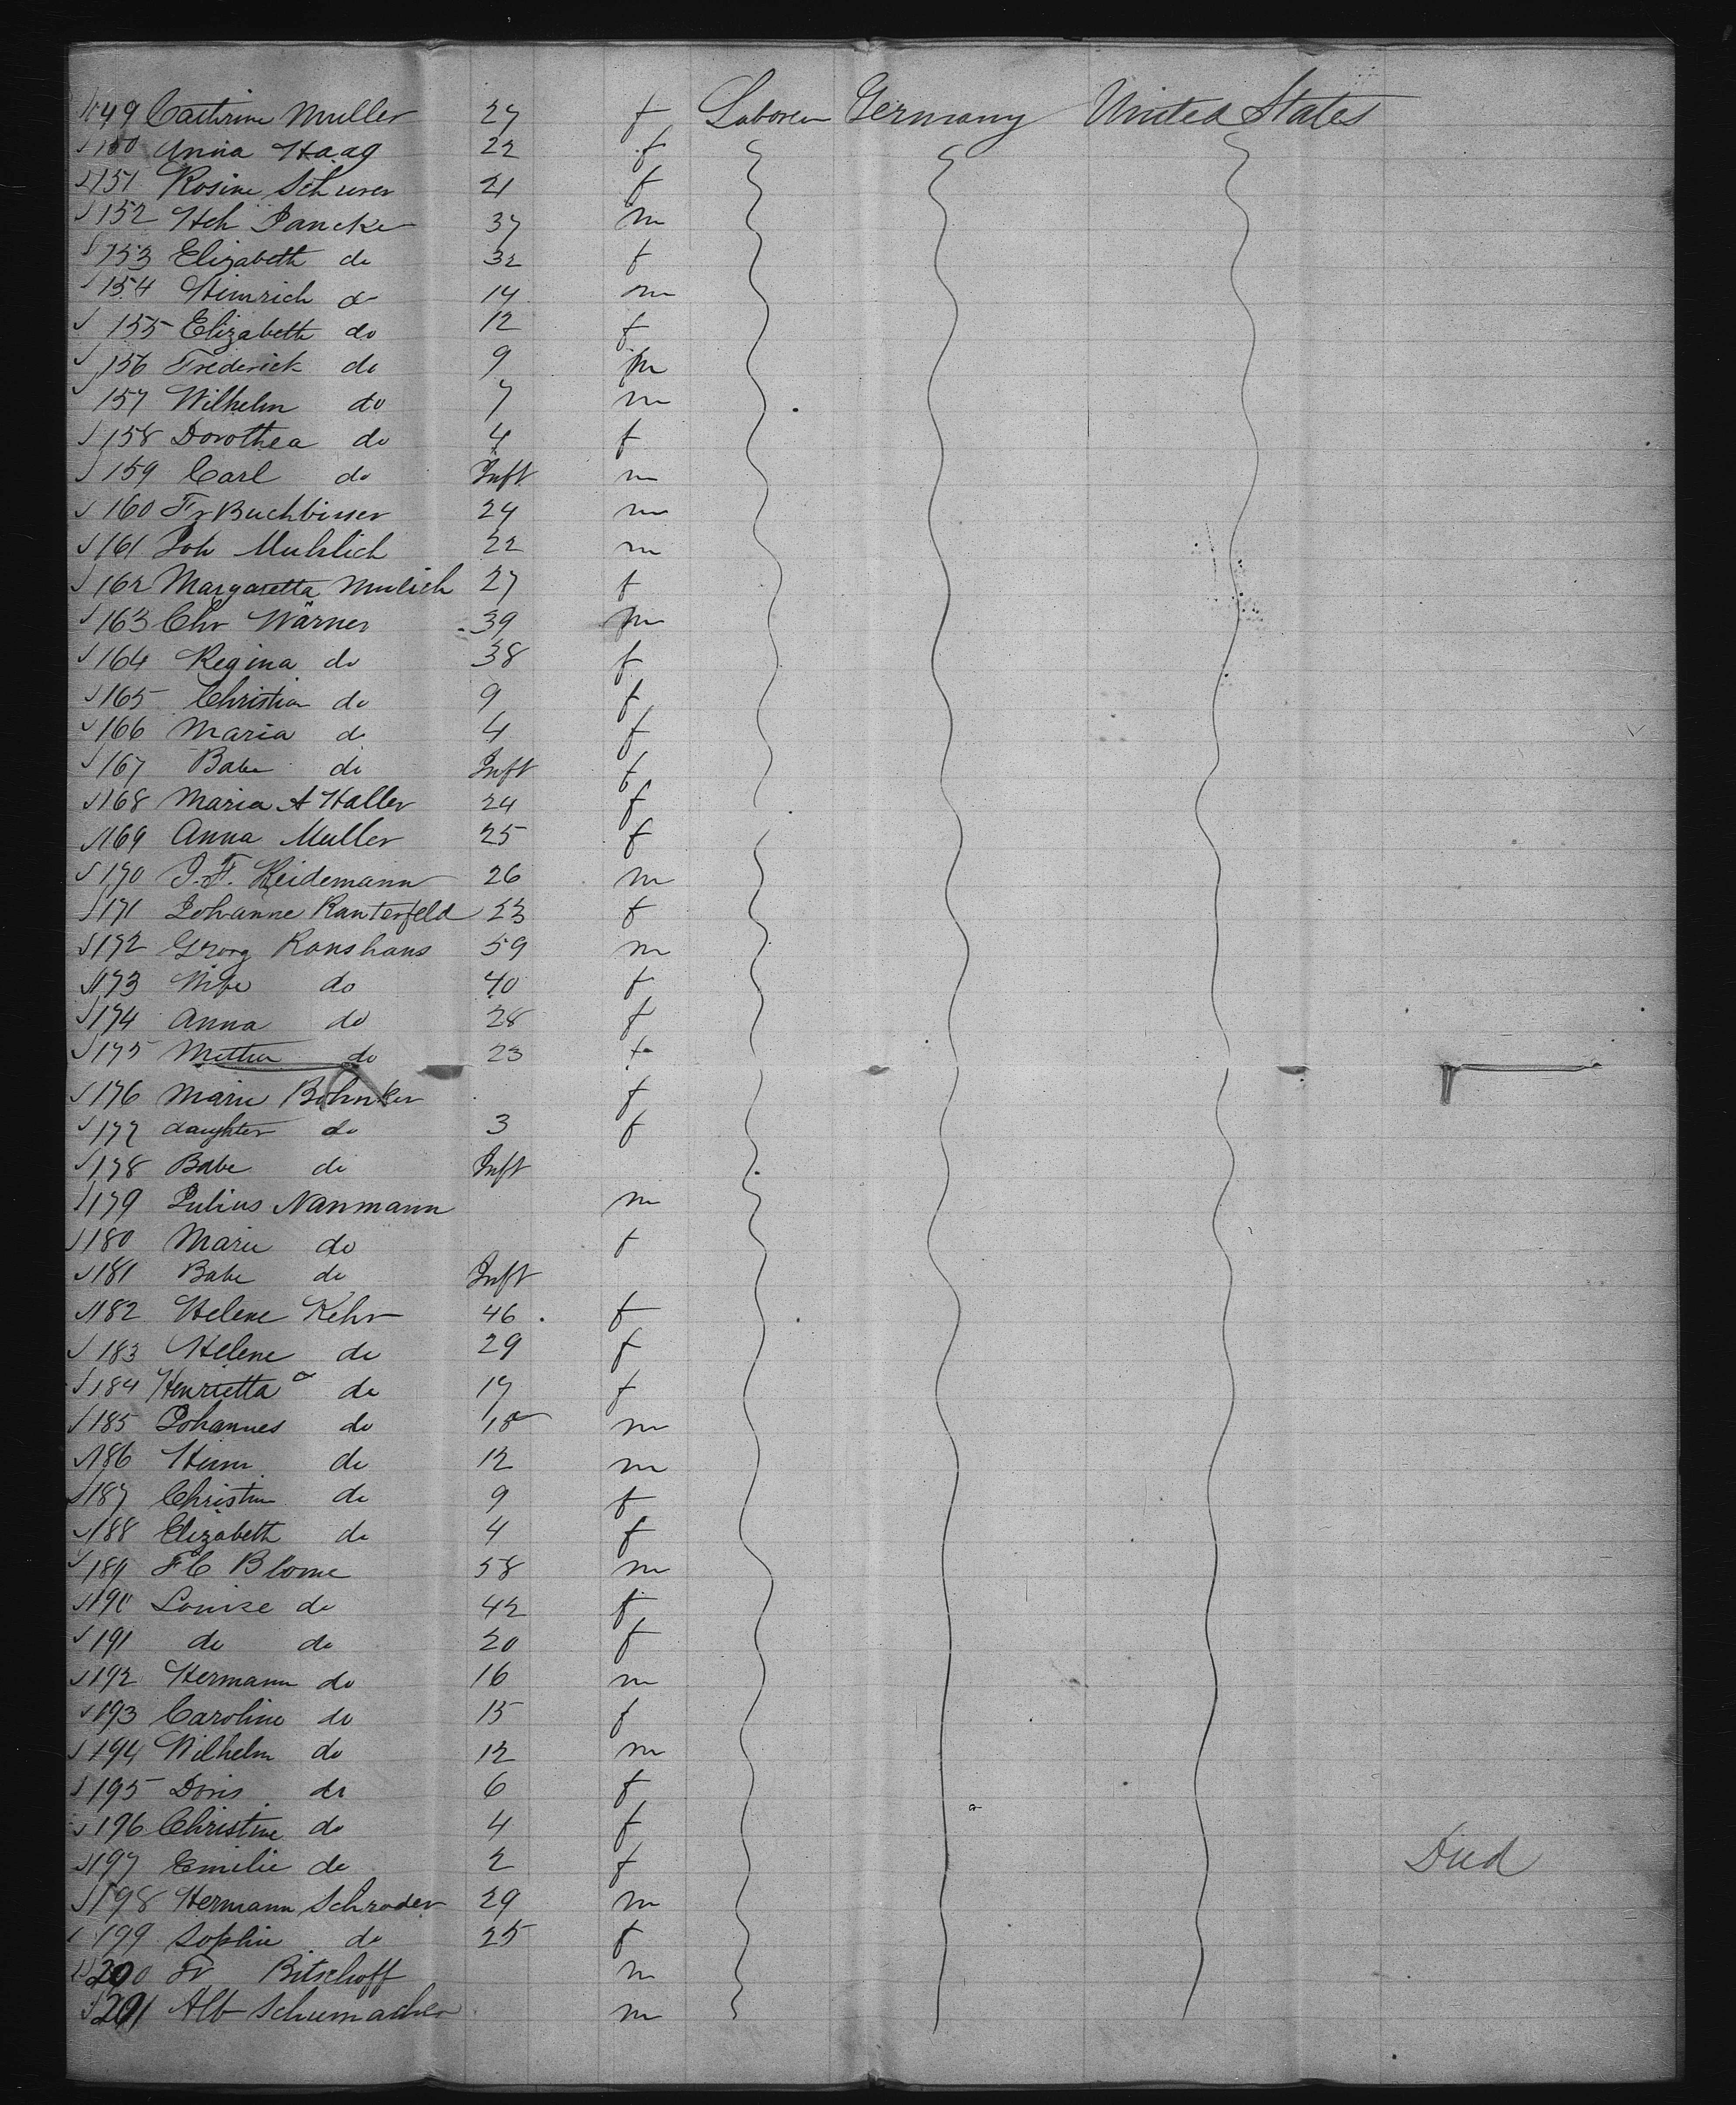 149 Cathrine Muller 27 f Laborer Germany United States
150 Anna Haag 22 f
151 Rosine Schurer 21 f
152 Hch Jancke 37 m
153 Elizabeth do 32 f
154 Heinrich do 14 m
155 Elizabeth do 12 f
156 Frederick do 9 m
157 Wilhelm do 7 m
158 Dorothea do 4 f
159 Carl do Inft m
160 Fr Buchbisser 24 m
161 Joh Muhlich 22 m
162 Margaretta Mulich 27 f
163 Chr Wärner 39 m
164 Regina do 38 f
165 Christian do 9 f
166 Maria do 4 f
167 Babe do Inft f
168 Maria A Haller 24 f
169 Anna Muller 25 f
170 J. F. Heidemann 26 m
171 Johanne Ranterfeld 23 f
172 Georg Ronshaus 59 m
173 Wife do 40 f
174 Anna do 28 f
175 do 23 f
176 Marie Bohnker f
177 daughter do 3 f
178 Babe do Inft
179 Julius Nanmann m
180 Marie do f
181 Babe do Inft
182 Helene Kehr 46 f
183 Helene do 29 f
184 Henrietta do 17 f
185 Johannes do 18 m
186 do 12 m
187 Christin do 9 f
188 Elizabeth do 4 f
189 FC Blome 58 m
190 Louise do 42 f
191 do do 20 f
192 Hermann do 16 m
193 Caroline do 15 f
194 Wilhelm do 12 m
195 Doris do 6 f
196 Christine do 4 f
197 Emilie do 2 f Died
198 Hermann Schroder 29 m
199 Sophie do 25 f
200 Fr Bitschoff m
201 Alb Schumacher m